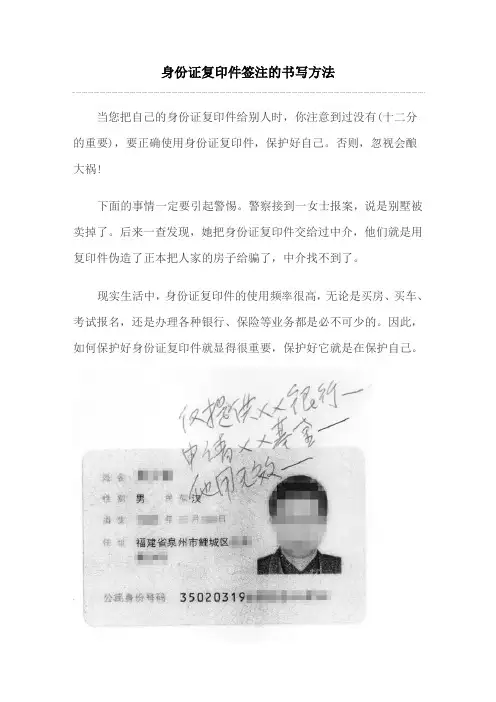 身份证复印件签注的书写方法
当您把自己的身份证复印件给别人时，你注意到过没有(十二分
的重要)，要正确使用身份证复印件，保护好自己。否则，忽视会酿
大祸!
下面的事情一定要引起警惕。警察接到一女士报案，说是别墅被
卖掉了。后来一查发现，她把身份证复印件交给过中介，他们就是用
复印件伪造了正本把人家的房子给骗了，中介找不到了。
现实生活中，身份证复印件的使用频率很高，无论是买房、买车、
考试报名，还是办理各种银行、保险等业务都是必不可少的。因此，
如何保护好身份证复印件就显得很重要，保护好它就是在保护自己。
仅提供××银行一
申请××基金一
他用无效一
姓名
性别 男 民族 汉
出生 年 月 日
住址 福建省泉州市鲤城区
公民身份号码 35020319